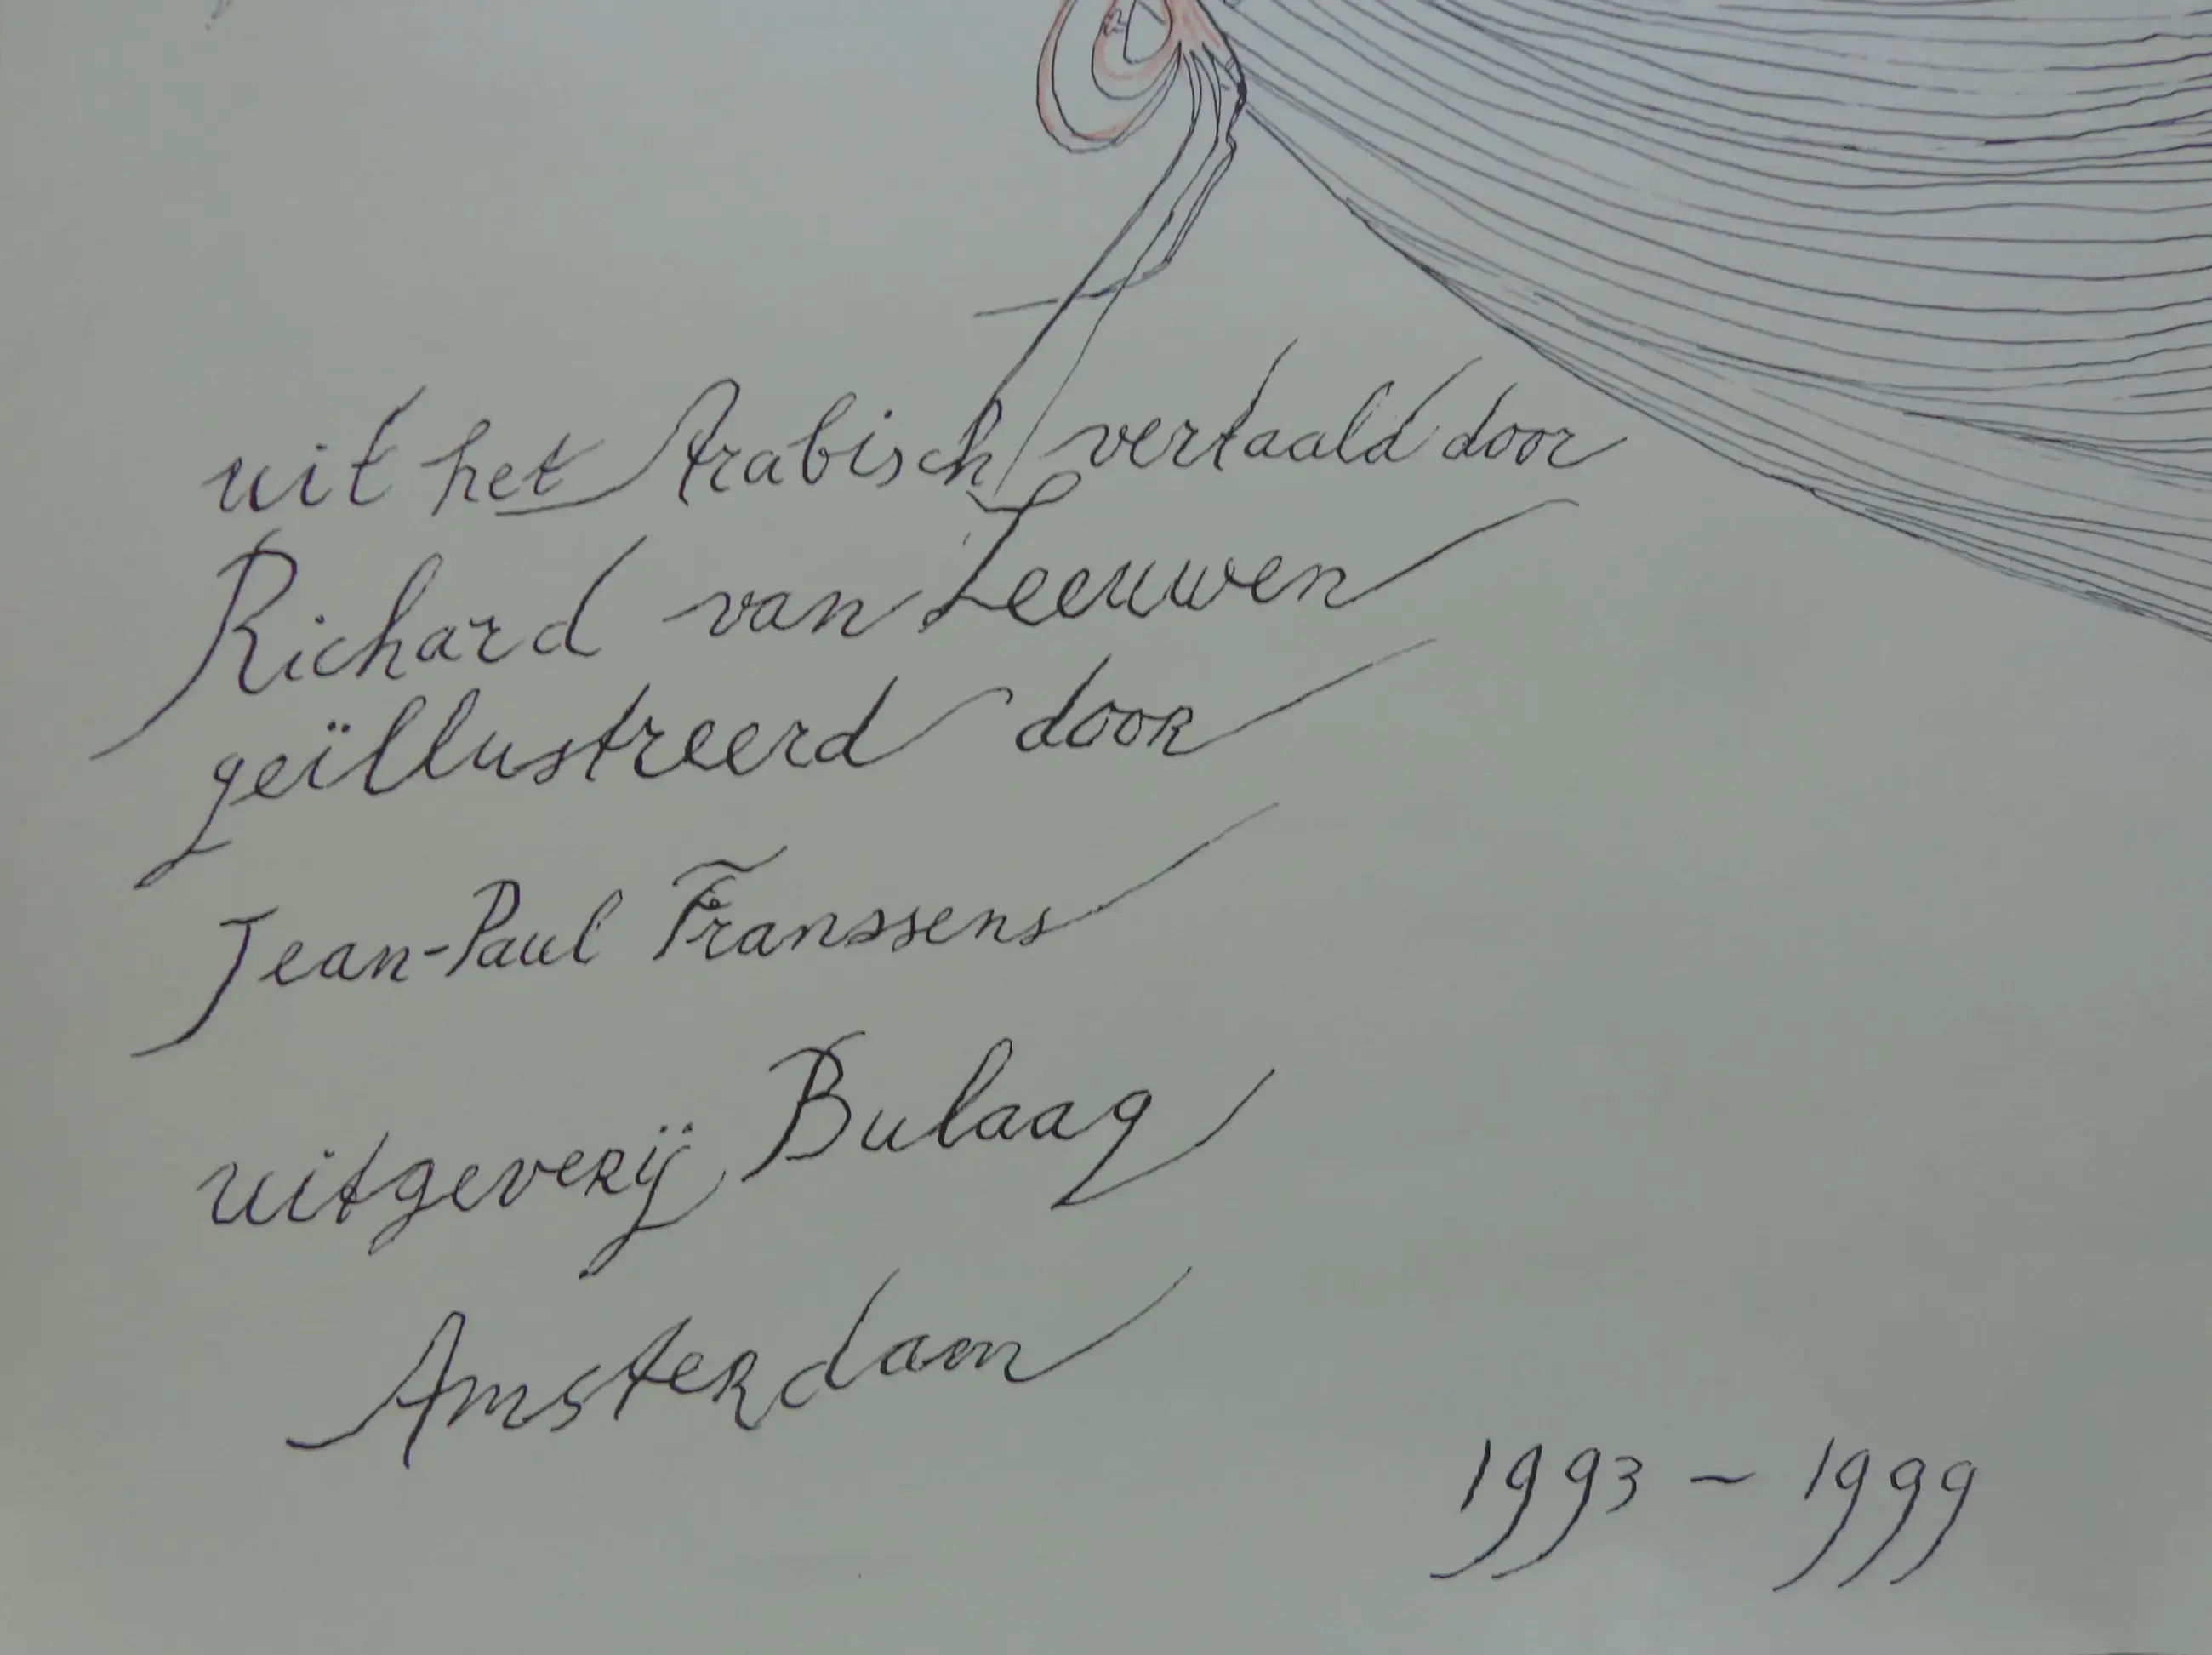 uit het Arabisch vertaald door
Richard van Leeuwen
geïllustreerd door
Jean-Paul Franssens
uitgeverij Bulaaq
Amsterdam
1993 - 1999